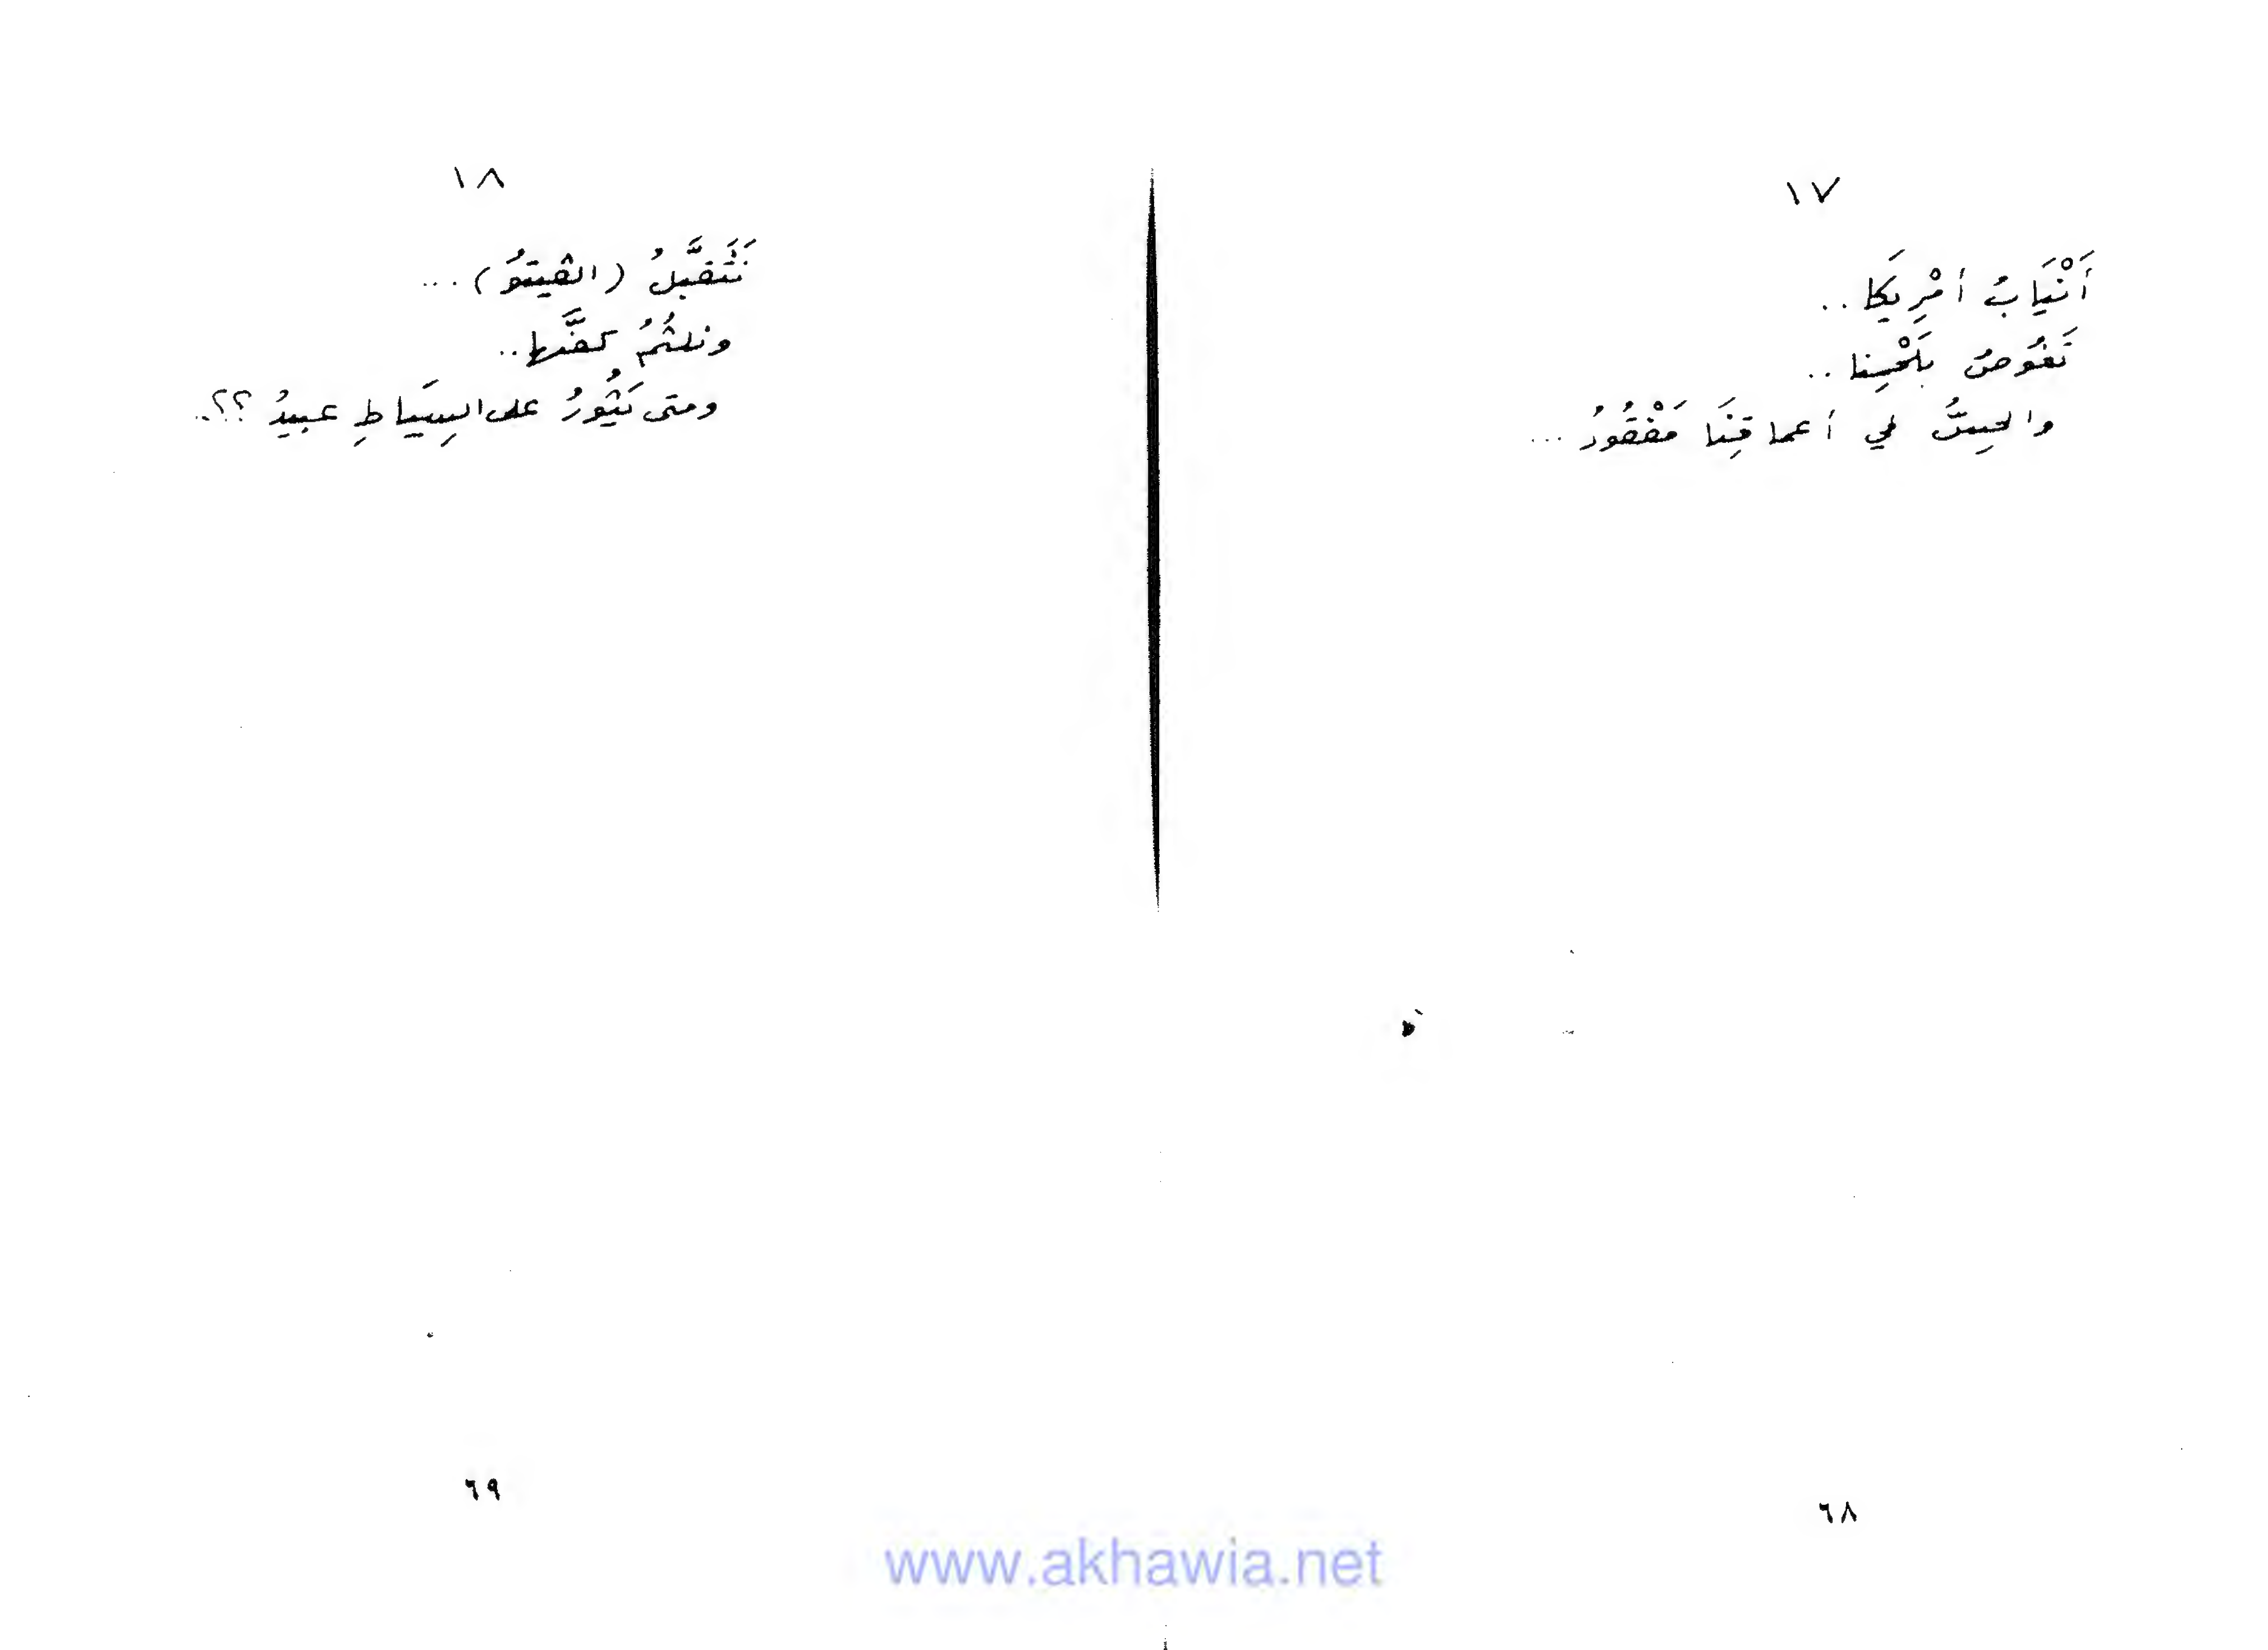 ١٧
أَنْيَابُ أمْرِيكَا ..
تَغُوصُ بلَحْمِنا ..
والحِسُّ في أعماقِنَا مَفْقُودُ ...
٦٨
١٨
نَتَقَبَّلُ (الڤيتو) ...
ونلثُمُ كفَّها ..
ومتى يَثُورُ على السِيَاطِ عبيدُ ؟؟..
٦٩
www.akhawia.net